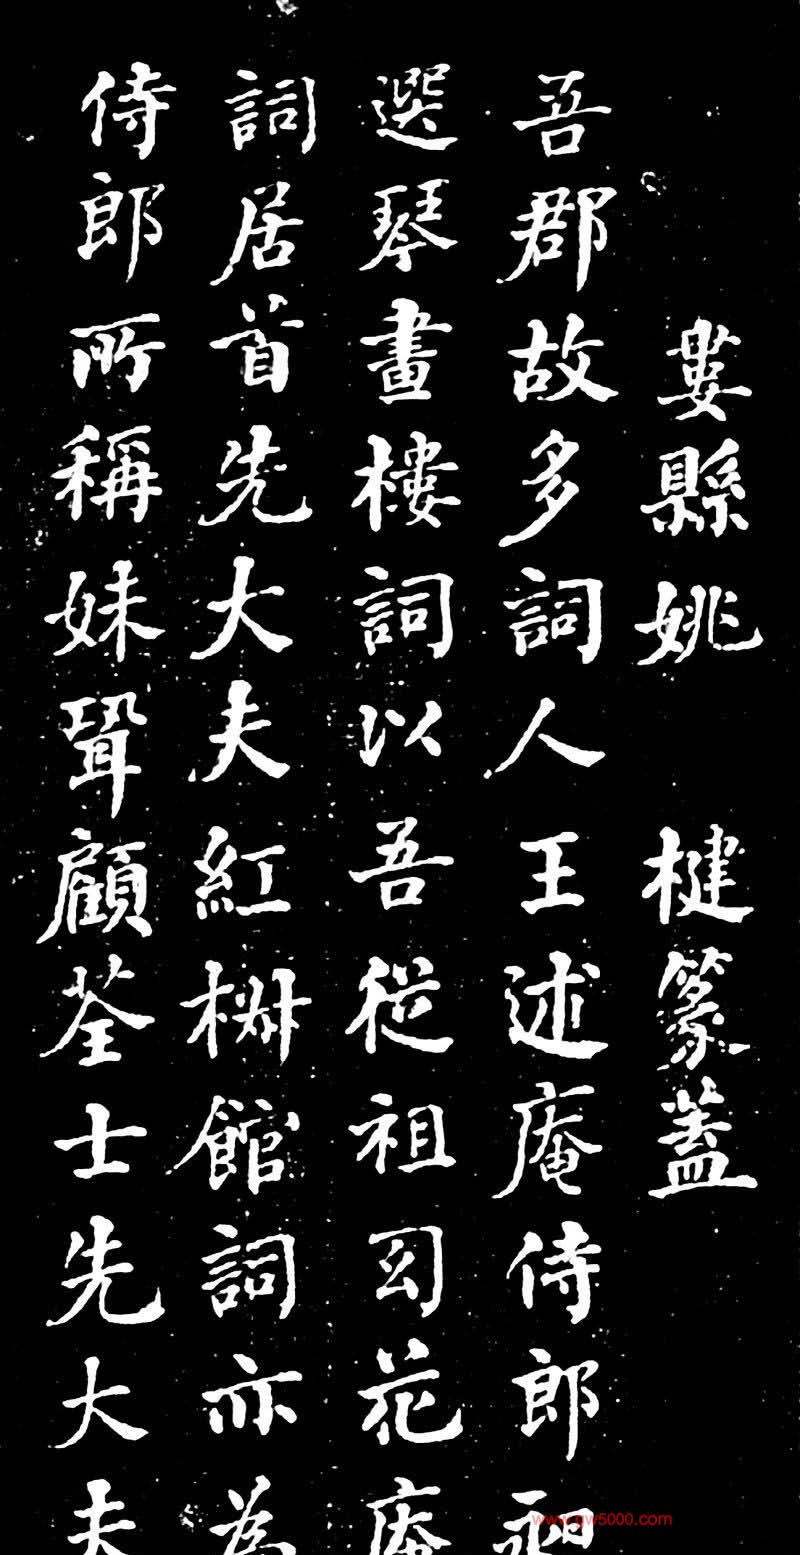 婁縣姚 楗篆蓋
吾郡故多詞人王述庵侍郎昶
選琴畫樓詞以吾從祖幻花庵
詞居首先大夫紅柵館詞亦為
侍郎所稱妹顧荃士先大夫
www.gw5000.com